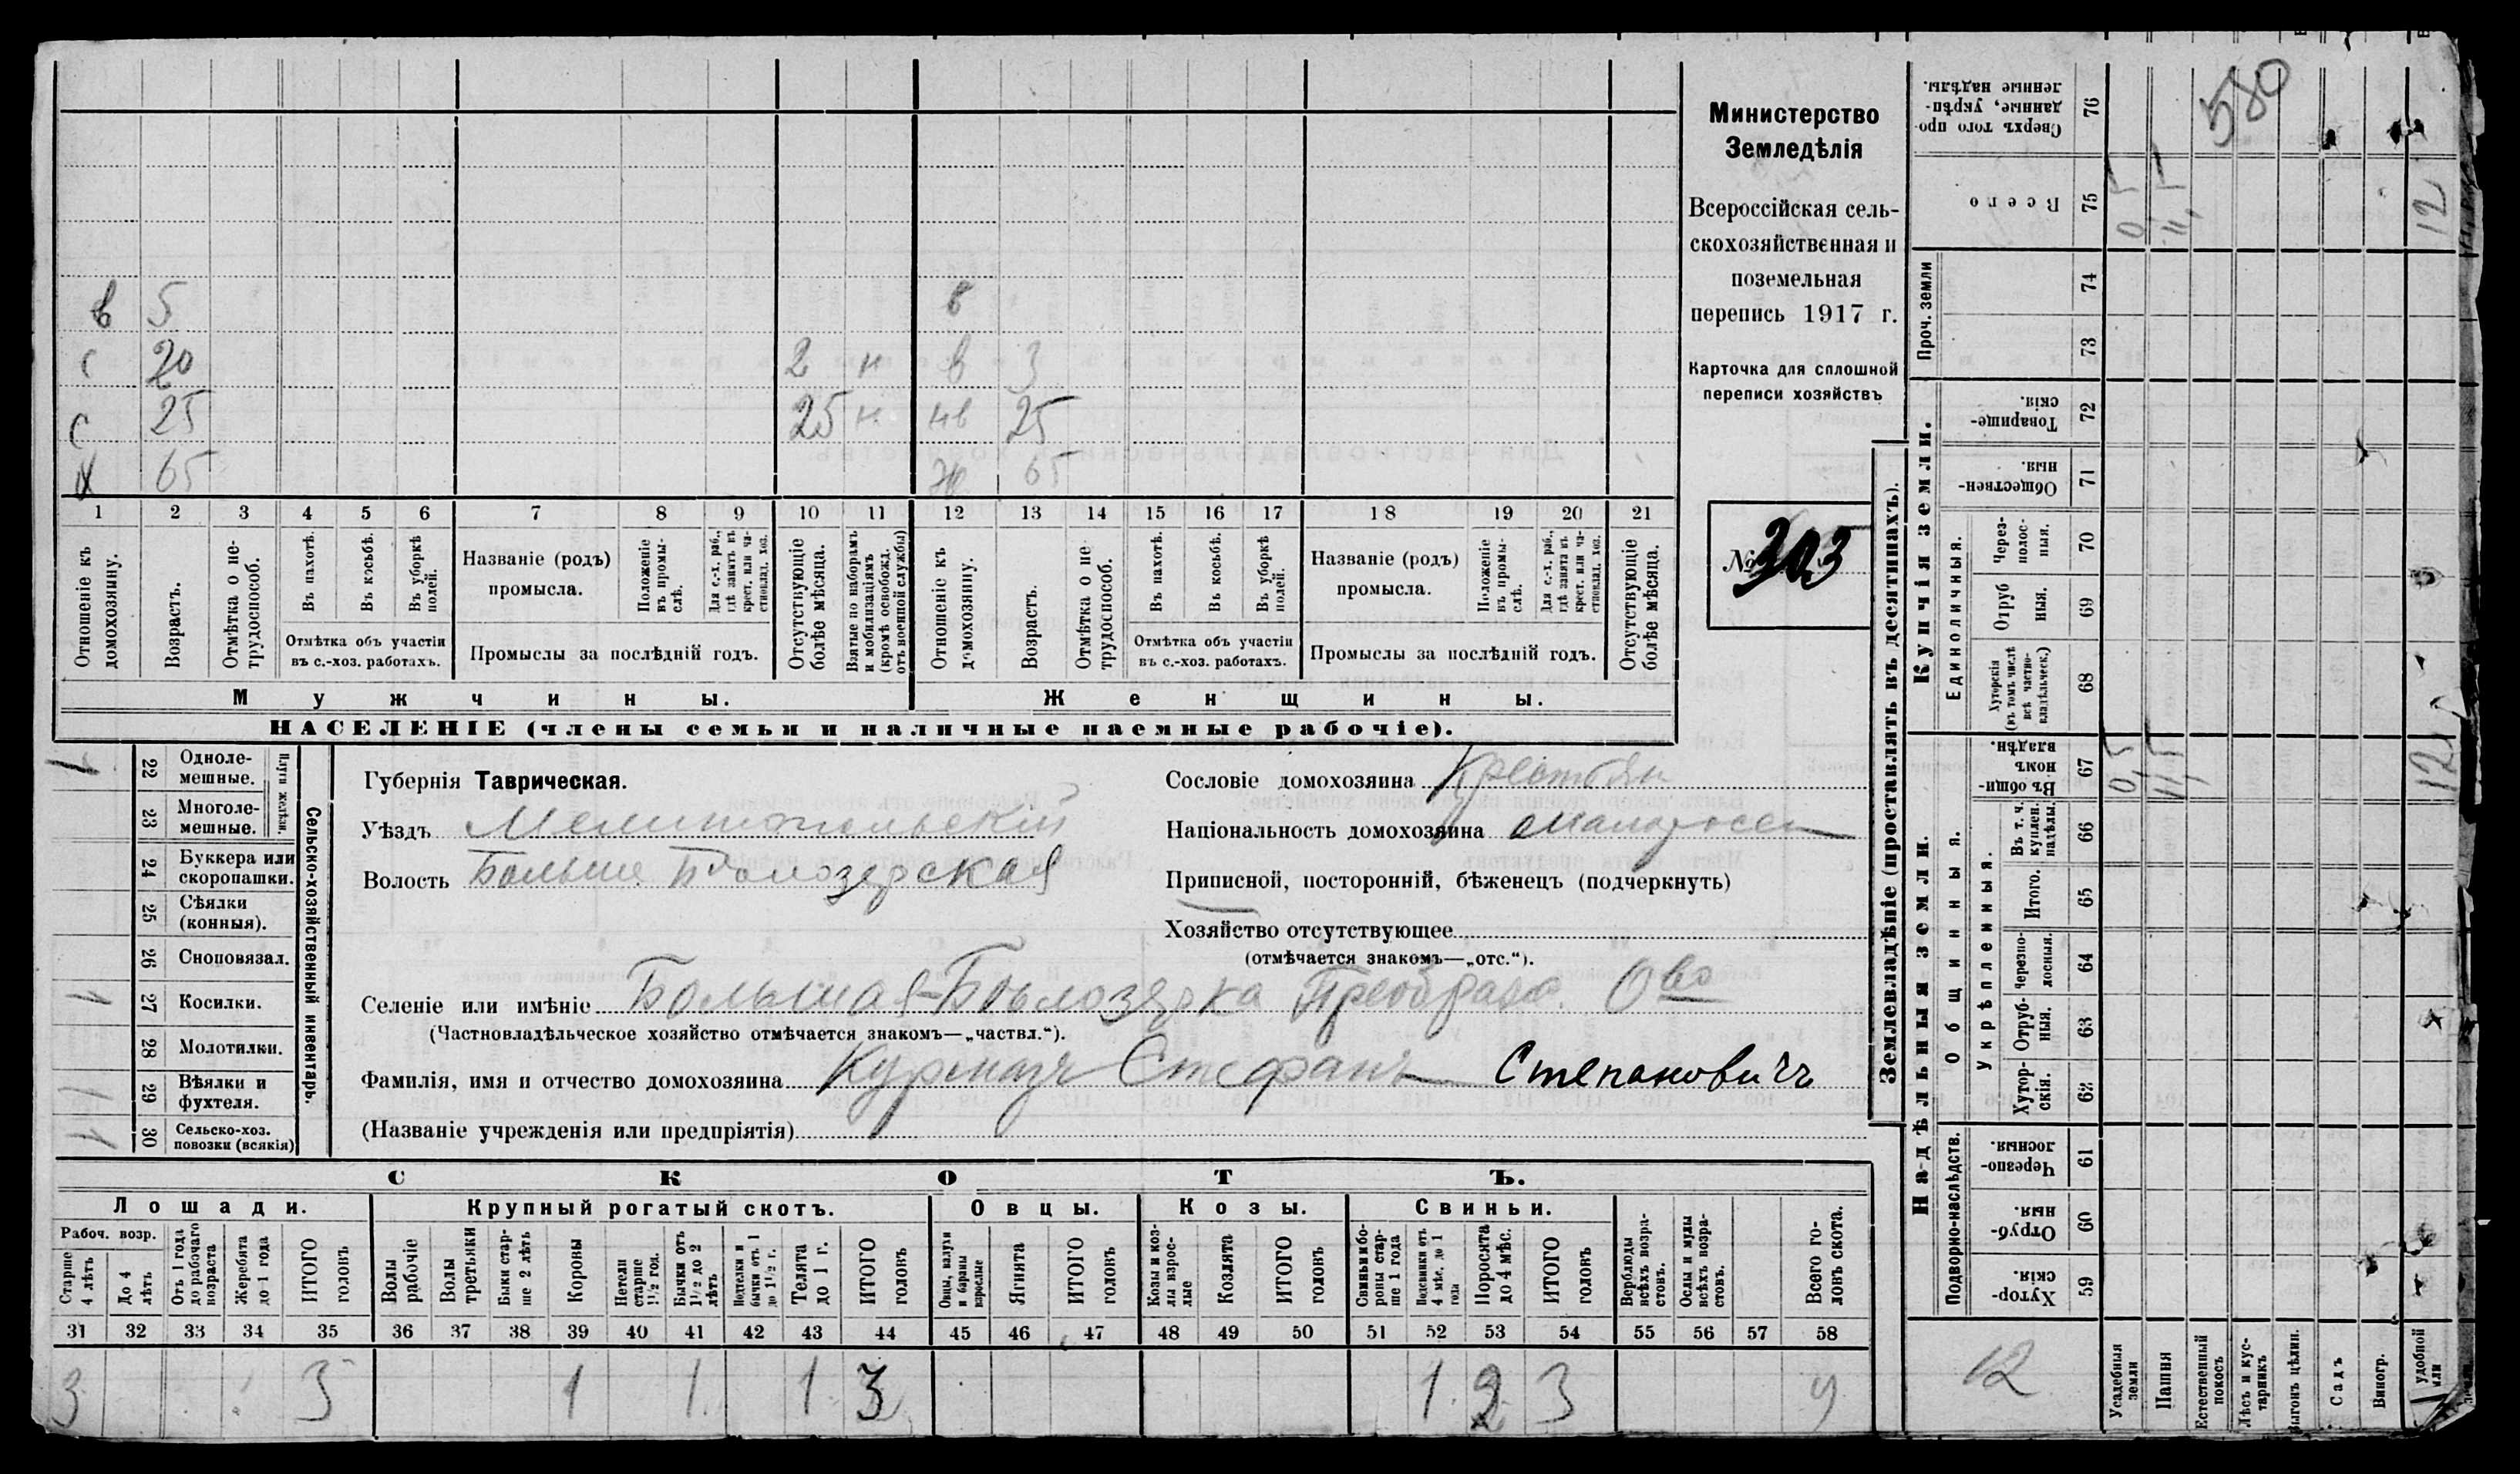 в 5 в
с 20 2 н в 3
с 25 25 н. нв 25
х 65 ж 65
1 2 3 4 5 6 7 8 9 10 11 12 13 14 15 16 17 18 19 20 21
Отношеніе къ домохозяину.
Возрастъ.
Отмѣтка о нетрудоспособ.
Въ пахотѣ.
Въ косьбѣ.
Въ уборкѣ полей.
Отмѣтка объ участіи
въ с.-хоз. работахъ.
Названіе (родъ)
промысла.
Положеніе въ промыслѣ.
Для с.-х. раб., гдѣ занятъ въ крест. или частновлад. хоз.
Промыслы за послѣдній годъ.
Отсутствующіе болѣе мѣсяца.
Взятые по наборамъ и мобилизаціямъ (кромѣ освобожд. отъ военной службы)
Отношеніе къ домохозяину.
Возрастъ.
Отмѣтка о нетрудоспособ.
Въ пахотѣ.
Въ косьбѣ.
Въ уборкѣ полей.
Отмѣтка объ участіи
въ с.-хоз. работахъ.
Названіе (родъ)
промысла.
Положеніе въ промыслѣ.
Для с.-х. раб., гдѣ занята въ крест. или частновлад. хоз.
Промыслы за послѣдній годъ.
Отсутствующіе болѣе мѣсяца.
Мужчины. Женщины.
НАСЕЛЕНІЕ (члены семьи и наличные наемные рабочіе).
Министерство
Земледѣлія
Всероссійская сель-
скохозяйственная и
поземельная
перепись 1917 г.
Карточка для сплошной
переписи хозяйствъ
№ 303
Плуги желѣзн.
1 22 Одноле-
мешные.
23 Многоле-
мешные.
24 Буккера или
скоропашки.
25 Сѣялки
(конныя).
26 Сноповязал.
1 27 Косилки.
28 Молотилки.
1 29 Вѣялки и
фухтеля.
1 30 Сельско-хоз.
повозки (всякія)
Сельско-хозяйственный инвентарь.
Губернія Таврическая.
Уѣздъ Мелитопольскій
Волость Больше Бѣлозерская
Сословіе домохозяина Крестьян
Національность домохозяина малоросс
Приписной, посторонній, бѣженецъ (подчеркнуть)
Хозяйство отсутствующее
(отмѣчается знакомъ—„отс.“).
Селеніе или имѣніе Большая-Бѣлозерка Преображ. Ово
(Частновладѣльческое хозяйство отмѣчается знакомъ—„частвл.“).
Фамилія, имя и отчество домохозяина Курмазъ Стефанъ Степановичъ
(Названіе учрежденія или предпріятія)
СКОТЪ.
Лошади. Крупный рогатый скотъ. Овцы. Козы. Свиньи.
Рабоч. возр.
Старше 4 лѣтъ
До 4 лѣтъ
Отъ 1 года до рабочаго возраста
Жеребята до 1 года
ИТОГО головъ
Волы рабочіе
Волы третьяки
Быки старше 2 лѣтъ
Коровы
Нетели старше 1½ год.
Бычки отъ 1½ до 2 лѣтъ
Подтелки и бычки отъ 1 до 1½ г.
Телята до 1 г.
ИТОГО головъ
Овцы, валухи и бараны взрослые
Ягнята
ИТОГО головъ
Козы и козлы взрослые
Козлята
ИТОГО головъ
Свиньи и бороны старше 1 года
Подсвинки отъ 4 мѣс. до 1 года
Поросята до 4 мѣс.
ИТОГО головъ
Верблюды всѣхъ возрастовъ.
Ослы и мулы всѣхъ возрастовъ.
Всего головъ скота.
31 32 33 34 35 36 37 38 39 40 41 42 43 44 45 46 47 48 49 50 51 52 53 54 55 56 57 58
3 3 1 1 1 3 1 2 3 9
Землевладѣніе (проставлять въ десятинахъ).
Купчія земли.
Надѣльныя земли.
580
76 Сверхъ того проданные, укрѣпленные надѣлы.
75 Всего 0,5 11,5 12
Проч. земли
74
73
72 Товарищескія.
71 Общественныя.
Единоличныя.
70 Черезполосныя.
69 Отрубныя.
68 Хуторскія (въ томъ числѣ всѣ частновладѣльческ.)
Общинныя.
67 Въ общинномъ владѣн. 0,5 11,5 12
Укрѣпленныя.
66 Въ т. ч. куплен. надѣлы.
65 Итого.
64 Черезполосныя.
63 Отрубныя.
62 Хуторскія.
Подворно-наслѣдств.
61 Черезполосныя.
60 Отрубныя.
59 Хуторскія.
12
Усадебныя земли
Пашня
Естественный покосъ
Лѣсъ и кустарникъ
Выгонъ цѣлин.
Садъ
Виногр.
удобной